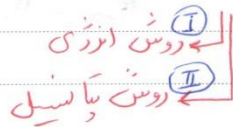 I روش انرژی
II روش پتانسیل